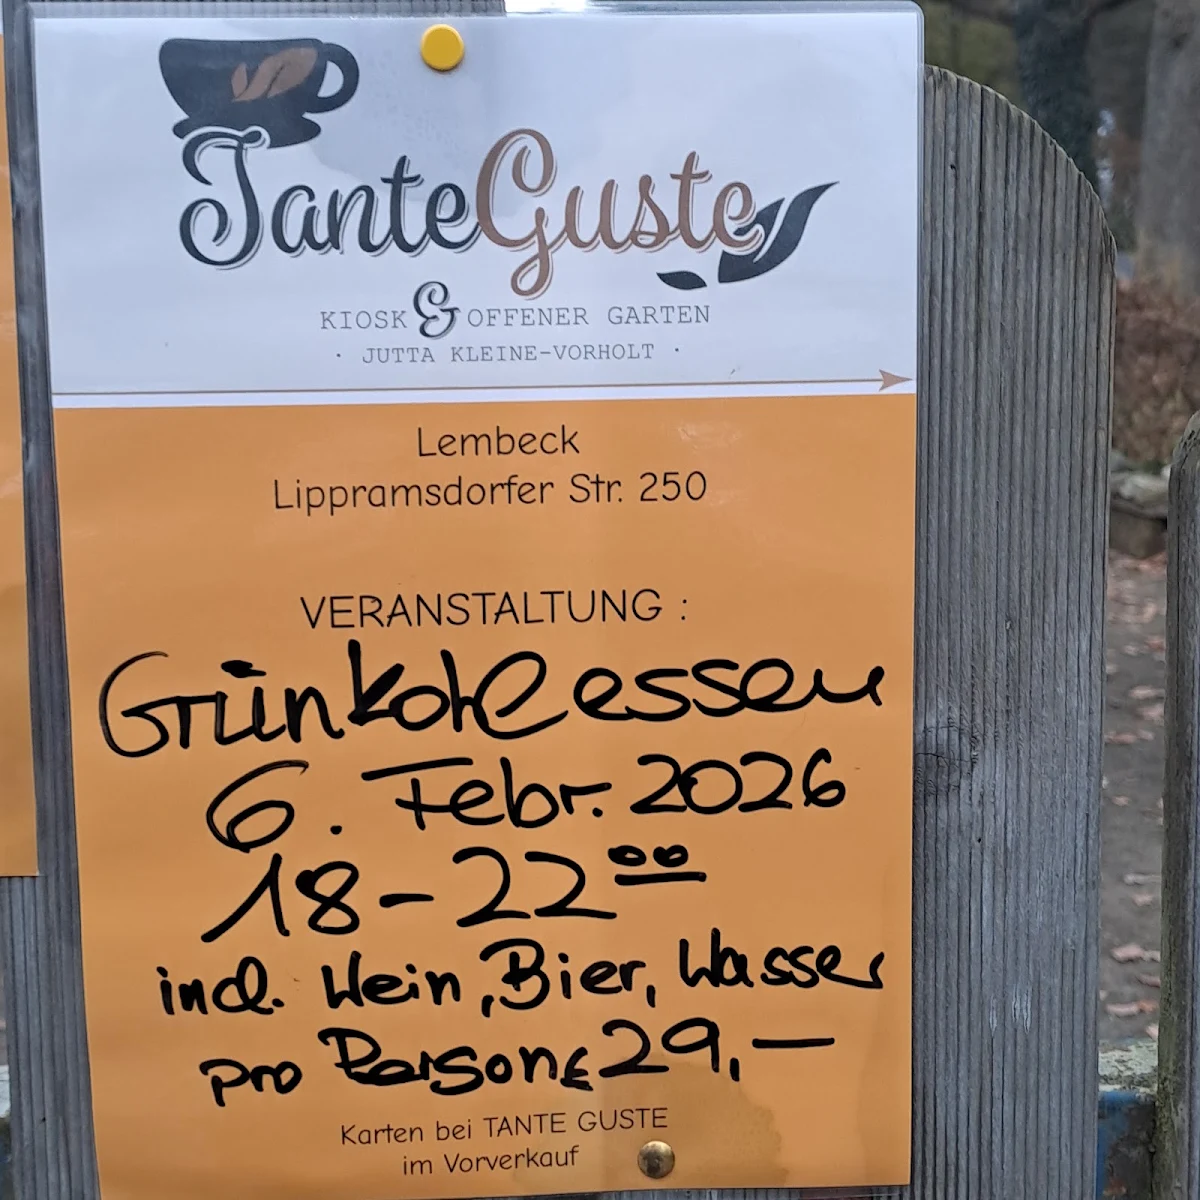 Tante Guste
KIOSK & OFFENER GARTEN
· JUTTA KLEINE-VORHOLT ·
Lembeck
Lippramsdorfer Str. 250
VERANSTALTUNG :
Grünkohlessen
6. Febr. 2026
18 - 22 00
incl. Wein, Bier, Wasser
pro Person € 29,-
Karten bei TANTE GUSTE
im Vorverkauf